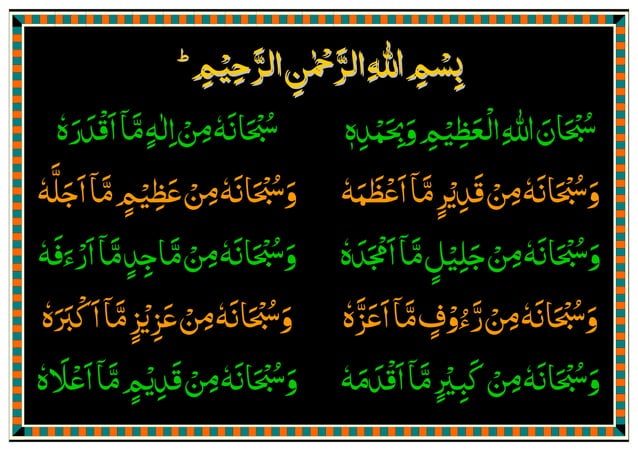 بِسْمِ اللهِ الرَّحْمٰنِ الرَّحِيْمِ ؕ
سُبْحَانَ اللهِ الْعَظِيْمِ وَبِحَمْدِهٖ سُبْحَانَهٗ مِنْ اِلٰهٍ مَّآ اَقْدَرَهٗ
وَسُبْحَانَهٗ مِنْ قَدِيْرٍ مَّآ اَعْظَمَهٗ وَسُبْحَانَهٗ مِنْ عَظِيْمٍ مَّآ اَجَلَّهٗ
وَسُبْحَانَهٗ مِنْ جَلِيْلٍ مَّآ اَمْجَدَهٗ وَسُبْحَانَهٗ مِنْ مَّاجِدٍ مَّآ اَرْءَفَهٗ
وَسُبْحَانَهٗ مِنْ رَّءُوْفٍ مَّآ اَعَزَّهٗ وَسُبْحَانَهٗ مِنْ عَزِيْزٍ مَّآ اَكْبَرَهٗ
وَسُبْحَانَهٗ مِنْ كَبِيْرٍ مَّآ اَقْدَمَهٗ وَسُبْحَانَهٗ مِنْ قَدِيْمٍ مَّآ اَعْلَاهٗ